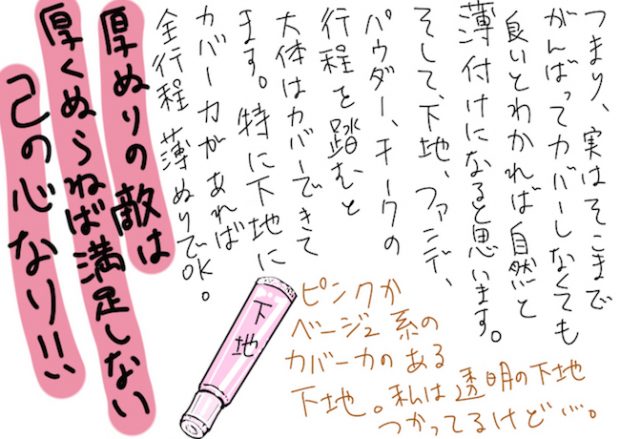 つまり、実はそこまで
がんばってカバーしなくても
良いとわかれば自然と
薄付けになると思います。
そして、下地、ファンデ、
パウダー、チークの
行程を踏むと
大体はカバーできて
ます。特に下地に
カバー力があれば
全行程 薄ぬりでOK。
厚ぬりの敵は
厚くぬらねば満足しない
己の心なり!!
下地
ピンクか
ベージュ系の
カバー力のある
下地。私は透明の下地
つかってるけど…。